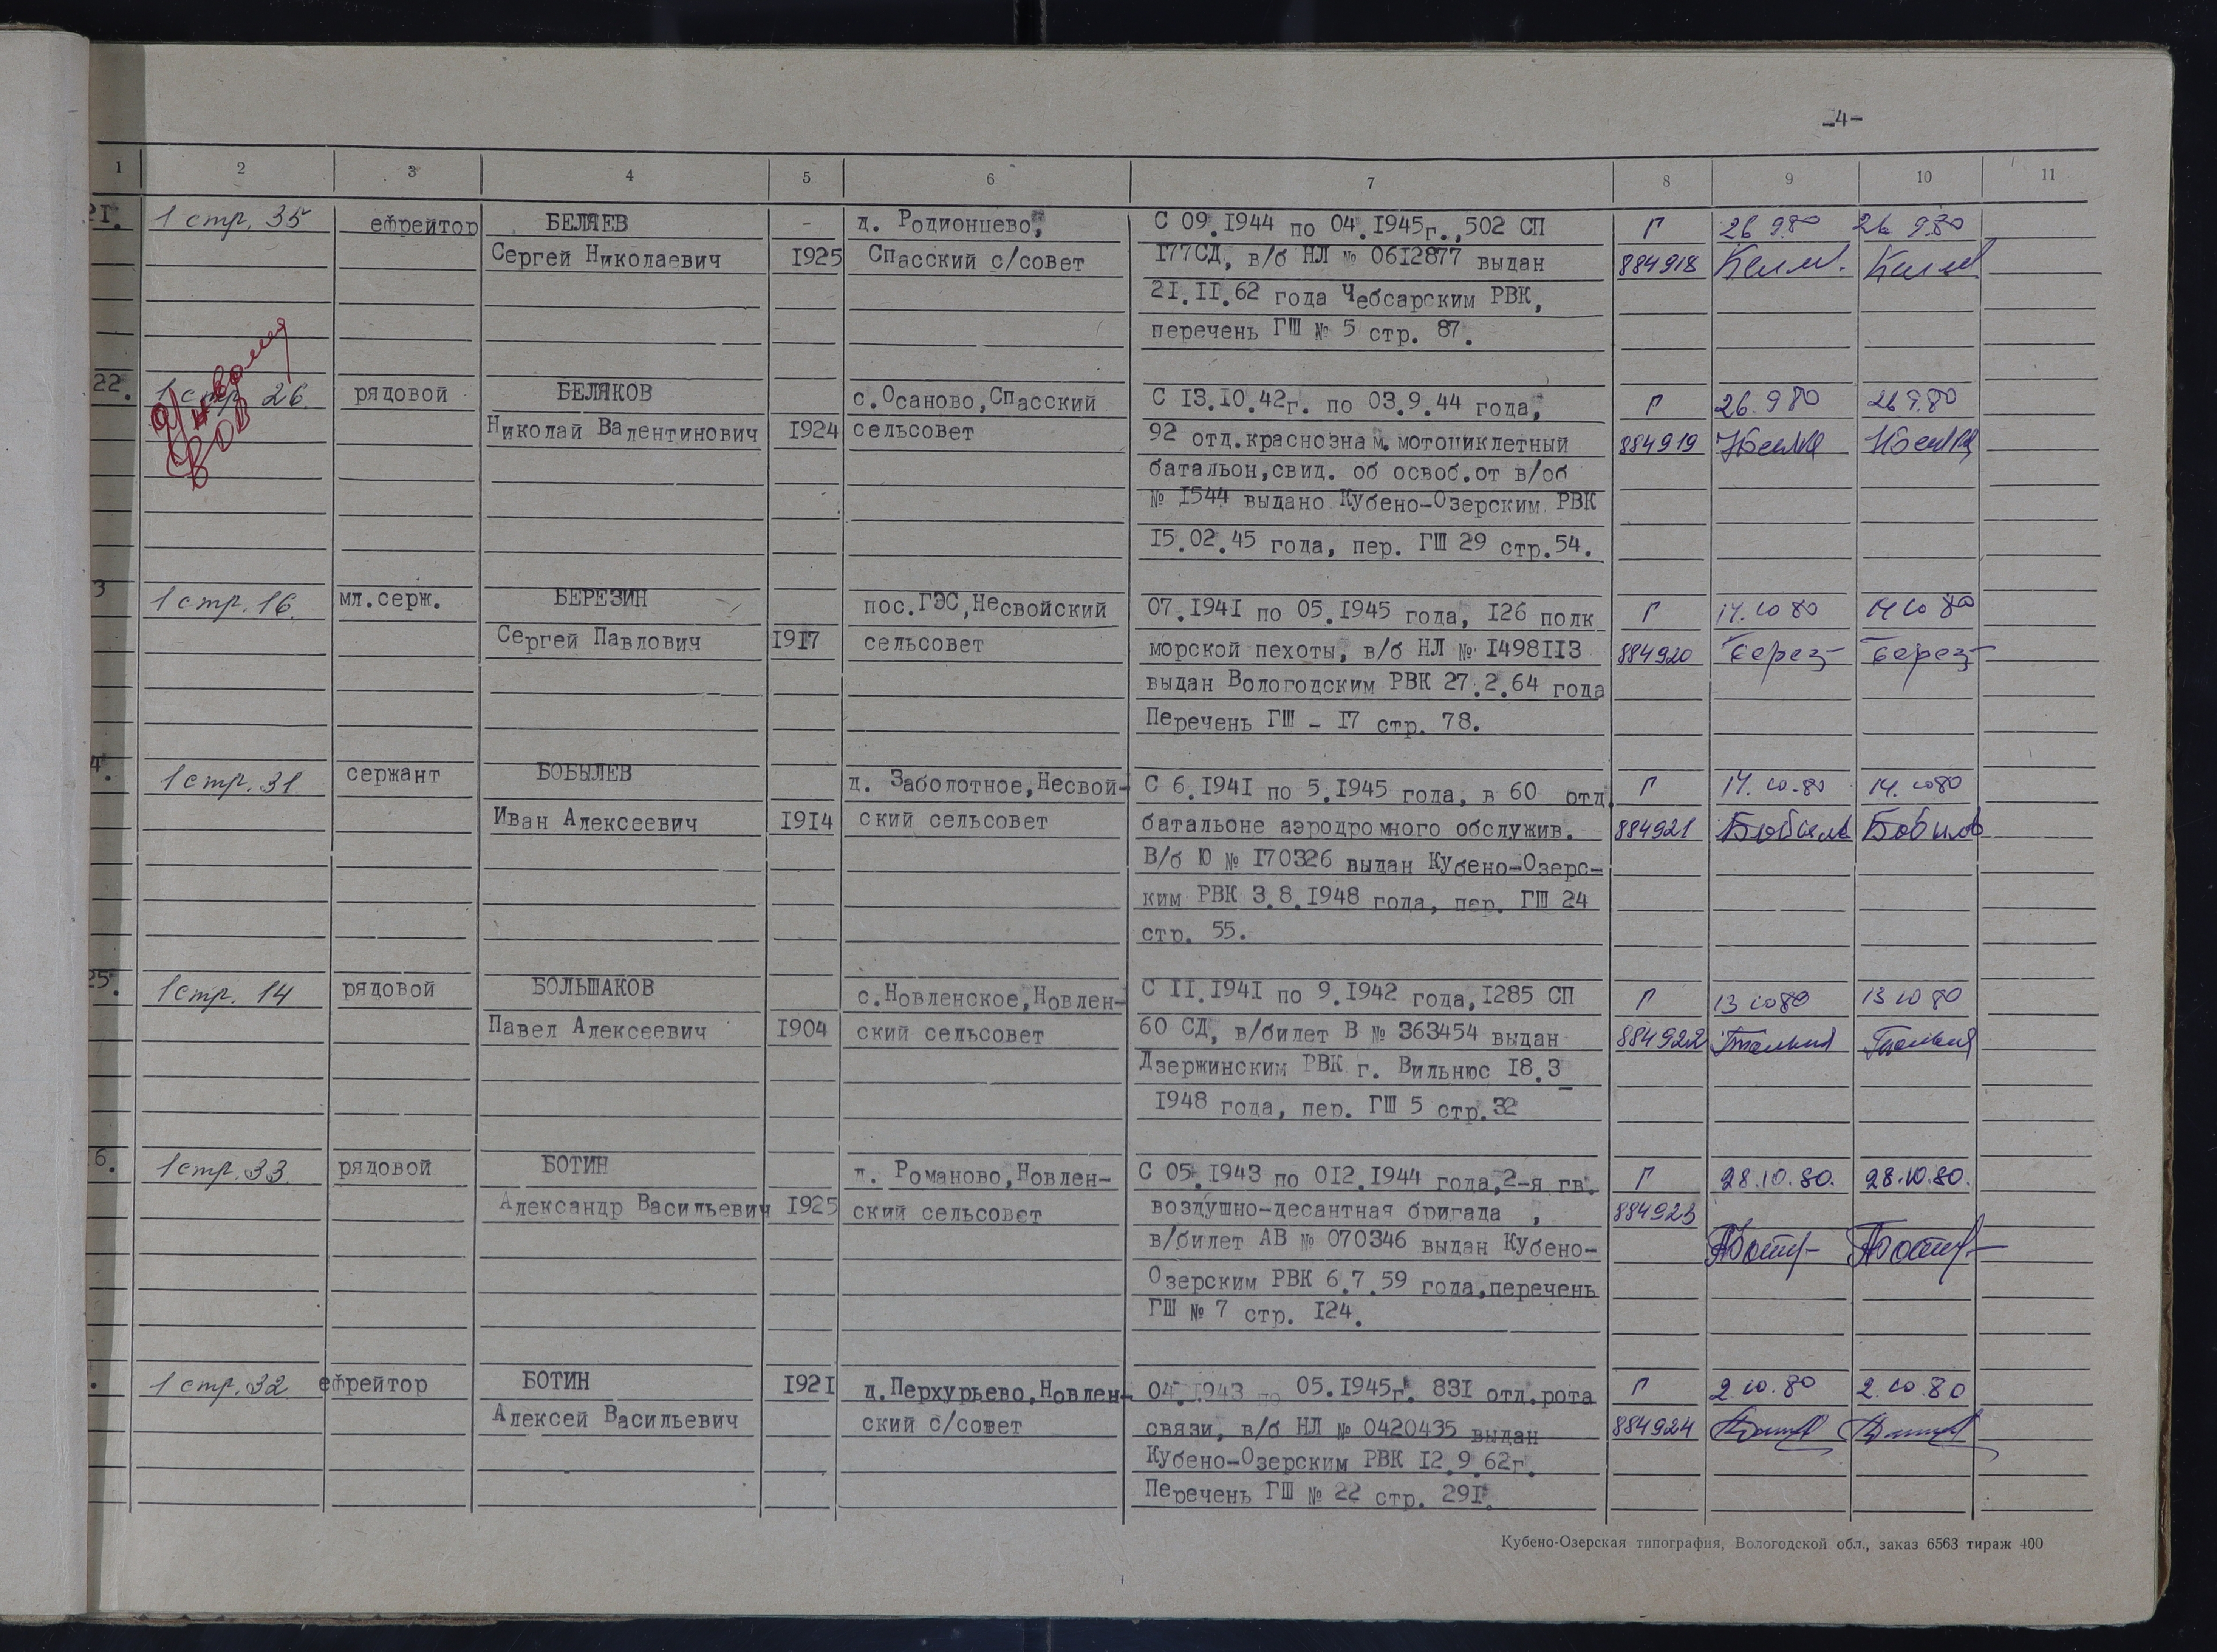 -4-
1 2 3 4 5 6 7 8 9 10 11
21. 1 стр. 35 ефрейтор БЕЛЯЕВ - д. Родионцево, С 09.1944 по 04.1945г.,502 СП Г 26 9.80 26 9.80
Сергей Николаевич 1925 Спасский с/совет 177СД, в/б НЛ № 0612877 выдан 884918
21.11.62 года Чебсарским РВК,
перечень ГШ № 5 стр. 87.
22. 1 стр. 26. рядовой БЕЛЯКОВ с.Осаново,Спасский С 13.10.42г. по 03.9.44 года, Г 26.9 80 26 9.80
ВОВ
Николай Валентинович 1924 сельсовет 92 отд.краснознам. мотоциклетный 884919
батальон,свид. об освоб.от в/об
№ 1544 выдано Кубено-Озерским РВК
15.02.45 года, пер. ГШ 29 стр.54.
3 1 стр. 16. мл.серж. БЕРЕЗИН пос.ГЭС,Несвойский 07.1941 по 05.1945 года, 126 полк Г 14.10 80 14 10 80
Сергей Павлович 1917 сельсовет морской пехоты, в/б НЛ № 1498113 884920 Берез Берез
выдан Вологодским РВК 27.2.64 года
Перечень ГШ - 17 стр. 78.
4. 1 стр. 31. сержант БОБЫЛЕВ д. Заболотное,Несвой- С 6.1941 по 5.1945 года, в 60 отд. Г 14.10.80 14.10 80
Иван Алексеевич 1914 ский сельсовет батальоне аэродромного обслужив. 884921
В/б Ю № 170326 выдан Кубено-Озерс-
ким РВК 3.8.1948 года, пер. ГШ 24
стр. 55.
25. 1 стр. 14 рядовой БОЛЬШАКОВ с.Новленское,Новлен- С 11.1941 по 9.1942 года,1285 СП Г 13 10 80 13 10 80
Павел Алексеевич 1904 ский сельсовет 60 СД, в/билет В № 363454 выдан 884922
Дзержинским РВК г. Вильнюс 18.3_
1948 года, пер. ГШ 5 стр.32
6. 1 стр. 33. рядовой БОТИН д. Романово,Новлен- С 05.1943 по 012.1944 года,2-я гв. Г 28.10.80. 28.10.80.
Александр Васильевич 1925 ский сельсовет воздушно-десантная бригада , 884923
в/билет АВ № 070346 выдан Кубено-
Озерским РВК 6.7.59 года,перечень
ГШ № 7 стр. 124.
. 1 стр. 32 ефрейтор БОТИН 1921 д.Перхурьево,Новлен- 04.1943 по 05.1945г. 831 отд.рота Г 2.10.80 2.10.80
Алексей Васильевич ский с/совет связи, в/б НЛ № 0420435 выдан 884924
Кубено-Озерским РВК 12.9.62г.
Перечень ГШ № 22 стр. 291.
Кубено-Озерская типография, Вологодской обл., заказ 6563 тираж 400